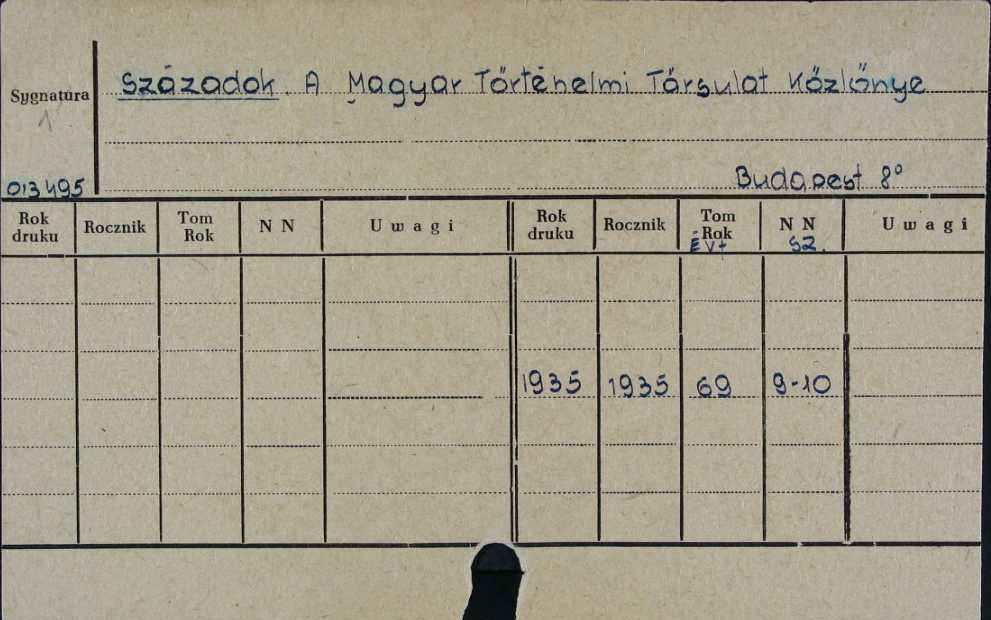 Sygnatura
Századok. A Magyar Történelmi Társulat Közlönye
013495
Budapest 8°
Rok druku Rocznik Tom Rok N N Uwagi Rok druku Rocznik Tom Rok N N Uwagi
Évf SZ.
1935 1935 69 9-10